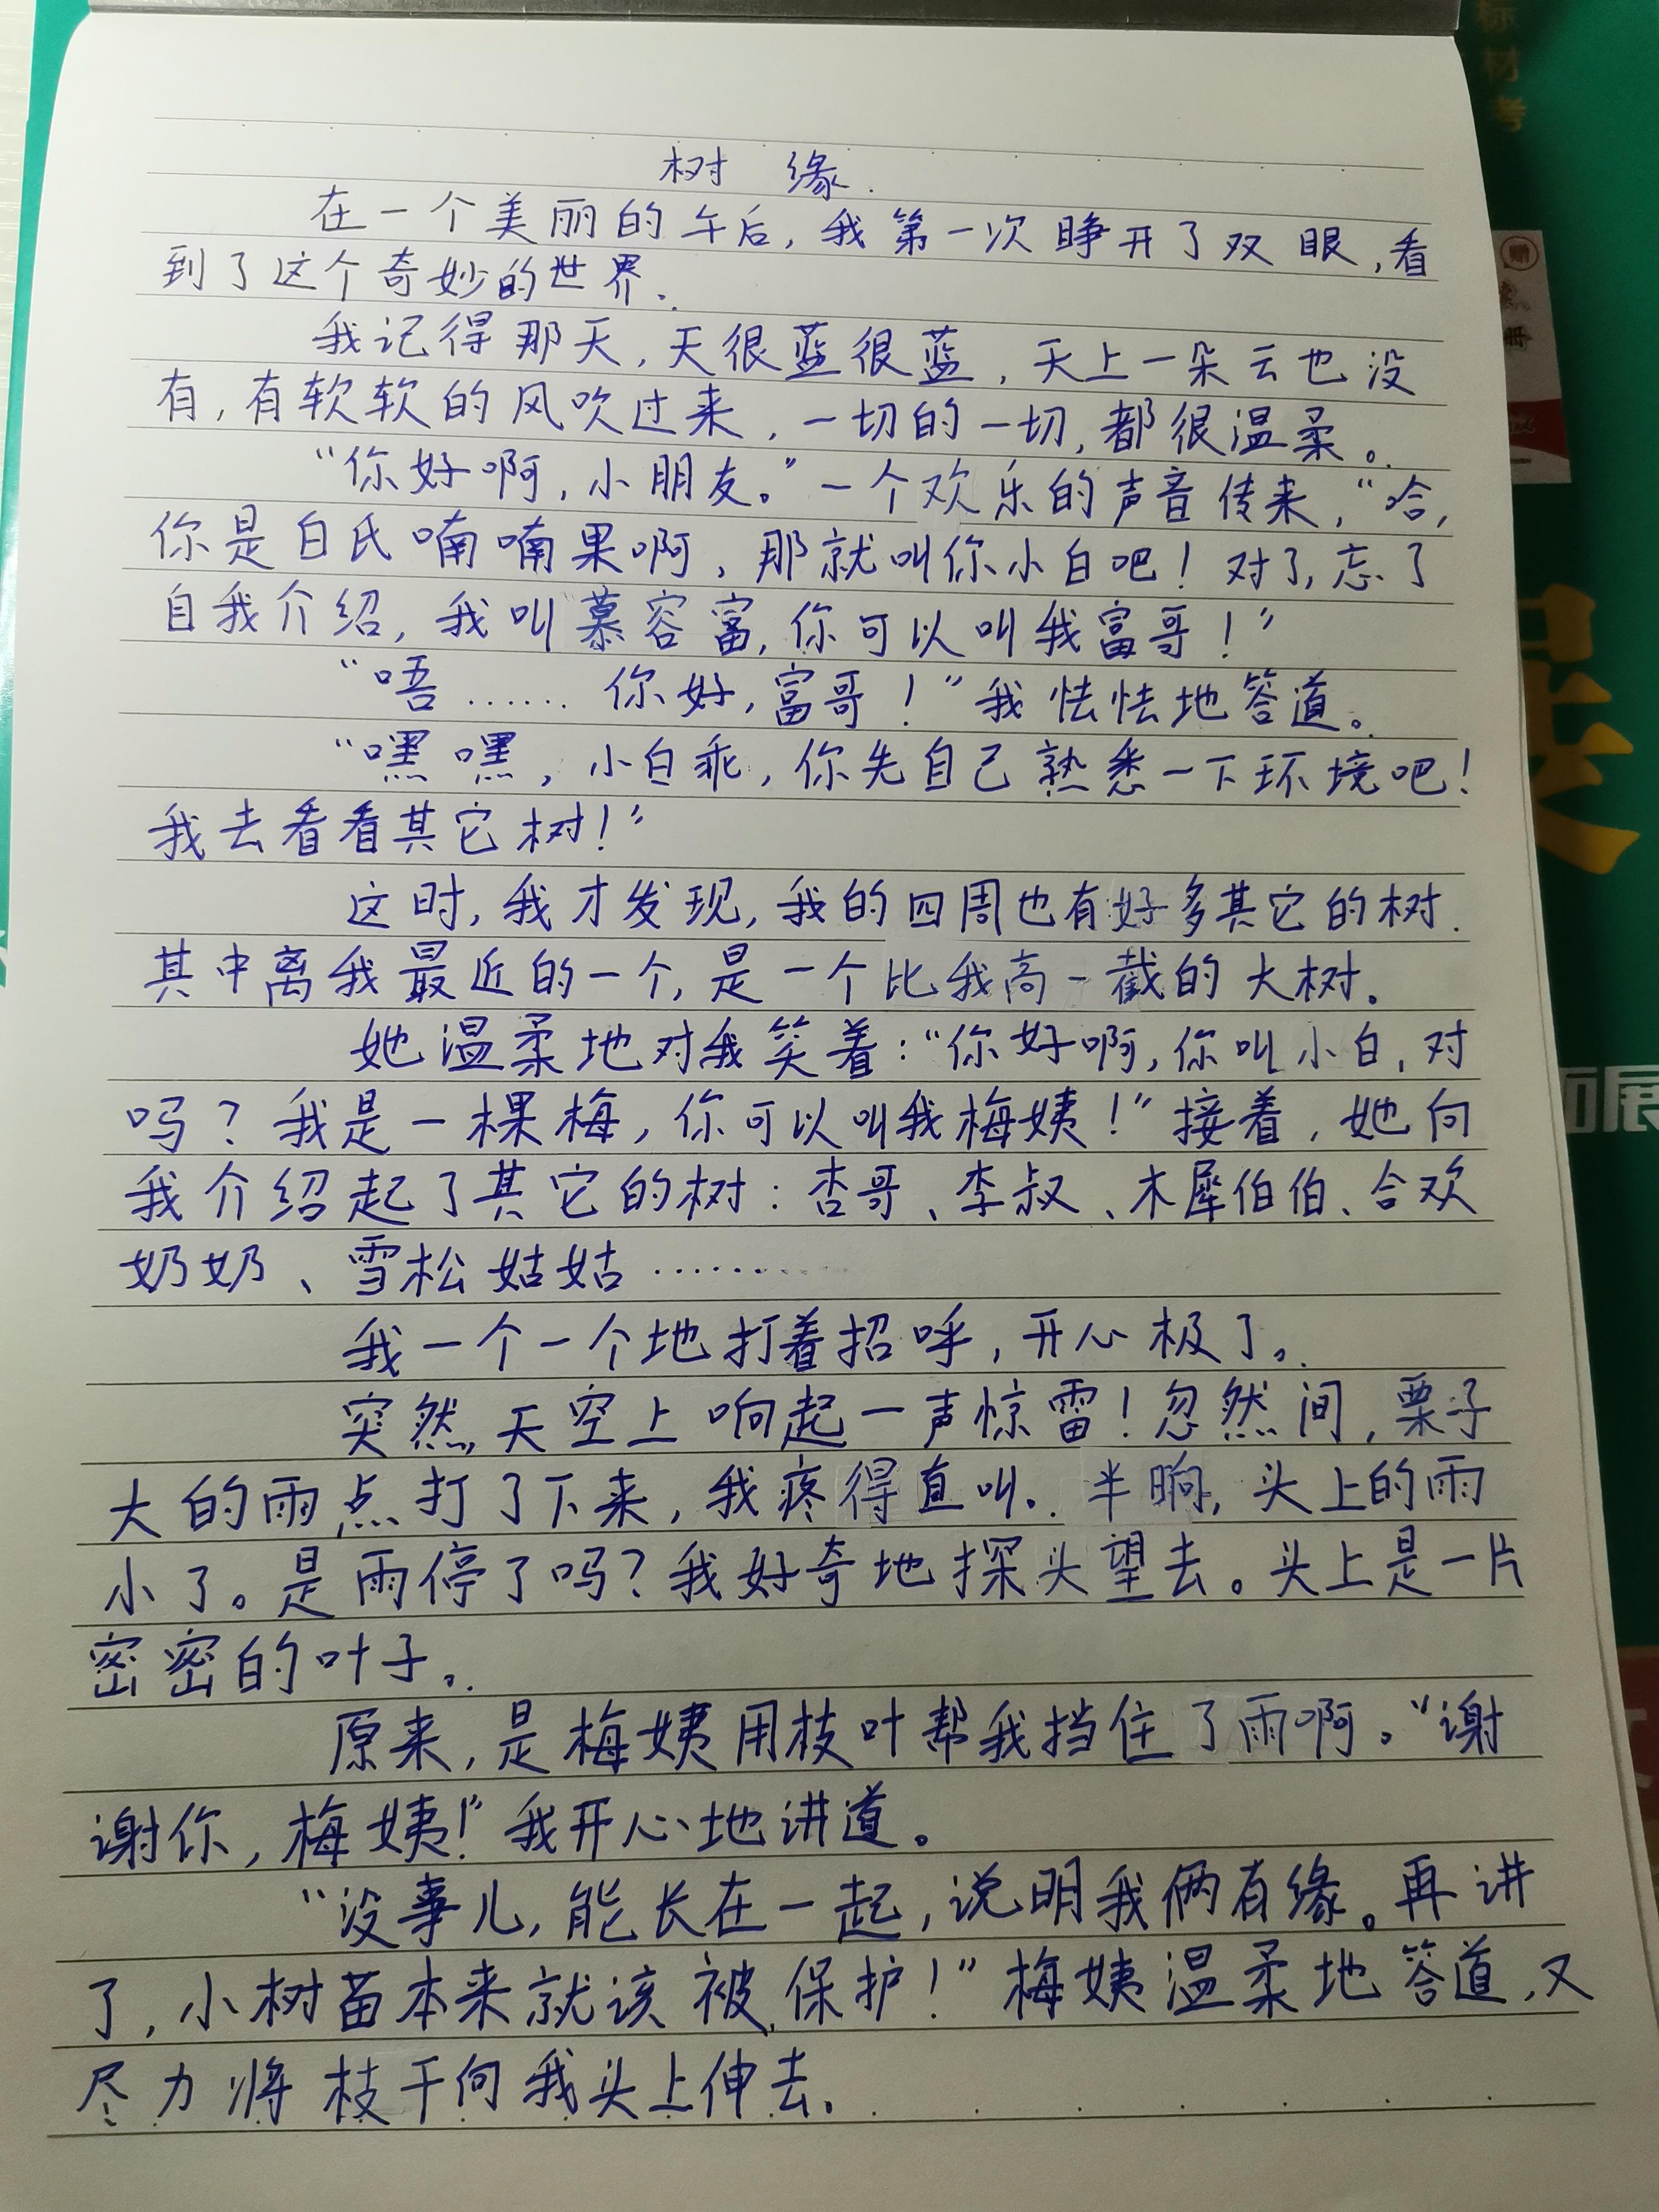 树 缘
在一个美丽的午后,我第一次睁开了双眼,看
到了这个奇妙的世界。
我记得那天,天很蓝很蓝,天上一朵云也没
有,有软软的风吹过来,一切的一切,都很温柔。
“你好啊,小朋友。”一个欢乐的声音传来,“哈,
你是白氏喃喃果啊,那就叫你小白吧!对了,忘了
自我介绍,我叫慕容富,你可以叫我富哥!”
“唔……你好,富哥!”我怯怯地答道。
“嘿嘿,小白乖,你先自己熟悉一下环境吧!
我去看看其它树!”
这时,我才发现,我的四周也有好多其它的树.
其中离我最近的一个,是一个比我高一截的大树。
她温柔地对我笑着:“你好啊,你叫小白,对
吗?我是一棵梅,你可以叫我梅姨!”接着,她向
我介绍起了其它的树:杏哥、李叔、木犀伯伯、合欢
奶奶、雪松姑姑………
我一个一个地打着招呼,开心极了。
突然,天空上响起一声惊雷!忽然间,栗子
大的雨点打了下来,我疼得直叫。半晌,头上的雨
小了。是雨停了吗?我好奇地探头望去。头上是一片
密密的叶子。
原来,是梅姨用枝叶帮我挡住了雨啊。“谢
谢你,梅姨!”我开心地讲道。
“没事儿,能长在一起,说明我俩有缘。再讲
了,小树苗本来就该被保护!”梅姨温柔地答道,又
尽力将枝干向我头上伸去。
标材考
赠
册
面展